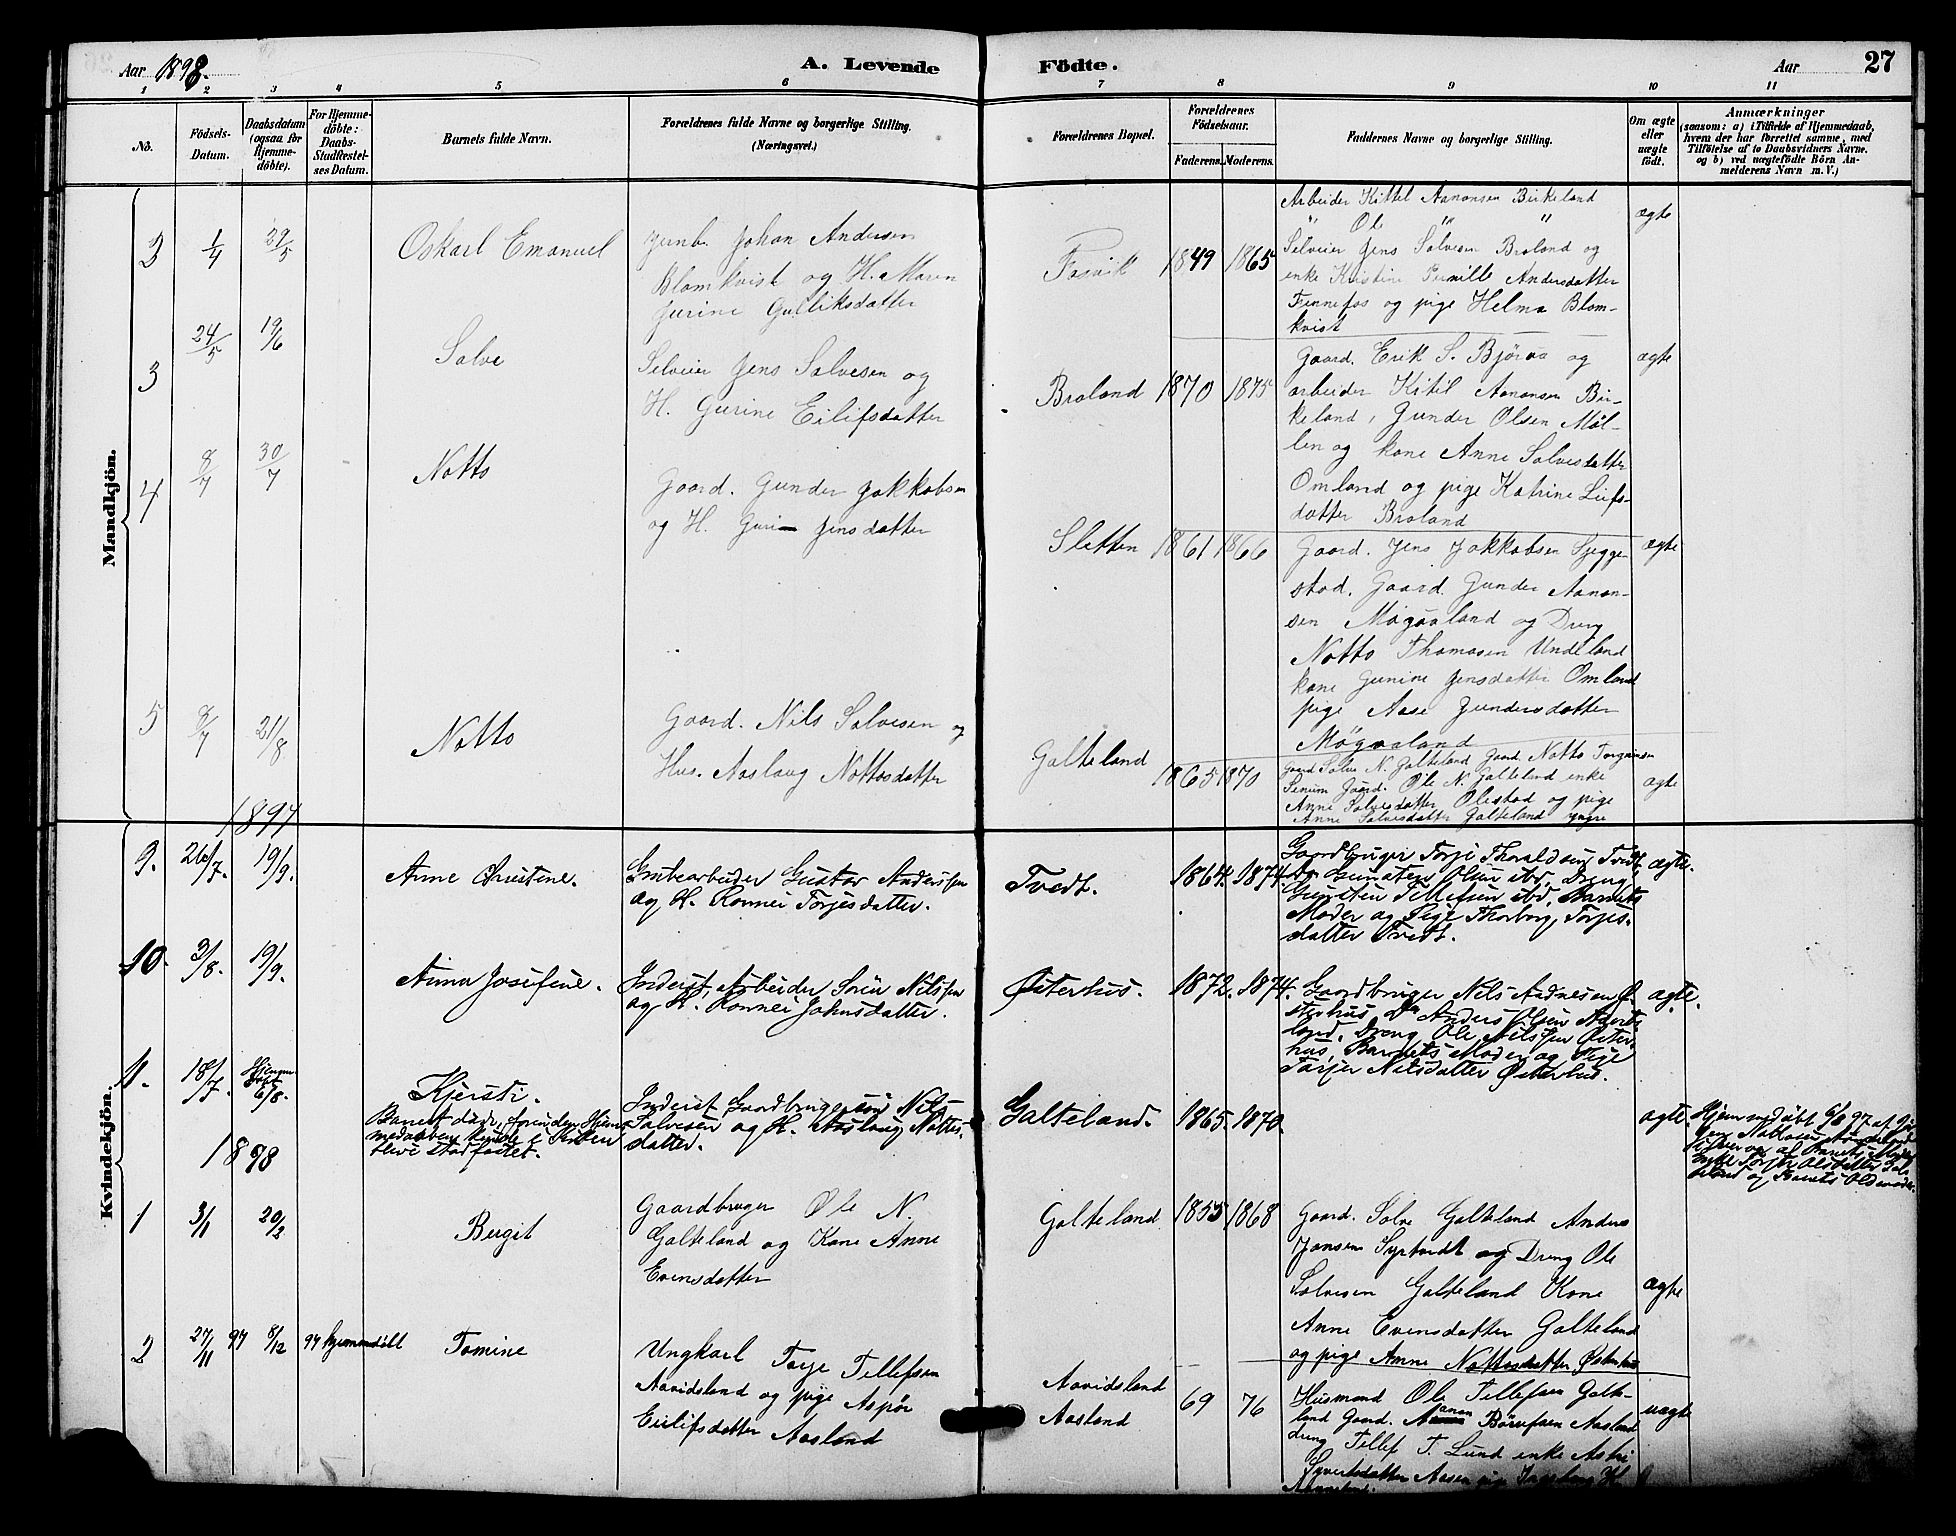 Aar 1898.
A. Levende
Födte.
Aar
27
1 2 3 4 5 6 7 8 9 10 11
No.
Födsels-Datum.
Daabsdatum (ogsaa for Hjemmedöbte).
For Hjemmedöbte: Daabs-Stadfæstelses Datum.
Barnets fulde Navn.
Forældrenes fulde Navne og borgerlige Stilling.
(Næringsvei.)
Forældrenes Bopæl.
Forældrenes Födselsaar.
Faderens. Moderens.
Faddernes Navne og borgerlige Stilling.
Om ægte eller uægte födt.
Anmærkninger
(saasom: a) i Tilfælde af Hjemmedaab,
hvem der har forrettet samme, med
Tilföielse af to Daabsvidners Navne.
og b) ved uægtefödte Börn An-
melderens Navn m.V.)
Mandkjön.
3 1/4 29/5 Oskarl Emanuel
Johan Andersen
Blomkvist og H. Maren
Gurine Gulliksdatter
1849 1865
Arbeider Kittel Aanonsen Birkeland
" Ole " "
Selveier Jens Salvesen Broland og
enke Kristine Pernille Andersdatter
Fennefos og pige Helma Blom-
kvist
ægte
3 24/5 19/6 Salve
Selveier Jens Salvesen og
H. Gurine Eilifsdatter
Broland 1870 1875
Gaard. Erik S. Björaa og
arbeider Kitil Aanonsen Bir-
keland, Gunder Olsen Möl-
len og kone Anne Salvesdatter
Omland og pige Katrine Leifs-
datter Broland
ægte
4 8/7 30/7 Notto
Gaard. Gunder Jakkobsen
og H. Guri Jensdatter
Sletten 1861 1866
Gaard. Jens Jakkobsen Sjegge-
stad. Gaard. Gunder Aanon-
sen Mögaaland og Dreng
Notto Thomasen Undeland
kone Gunine Jensdatter Omland
pige Aase Gundersdatter
Mögaaland
ægte
5 8/7 21/8 Notto
Gaard. Nils Salvesen og
Hus. Aaslaug Nottosdatter
Galteland 1865 1870
Gaard Salve N. Galteland Gaard Notto Torgrimsen
Senum Gaard. Ole N. Galteland enke
Anne Salvesdatter Olestad og pige
Anne Salvesdatter Galteland yngre
ægte
1897
Kvindekjön.
9. 26/7. 19/9. Anne Christene.
Grubearbeider Gustav Anderssen
og H. Ronnei Torjesdatter.
Tvedt. 1864. 1874.
Gaardbruger Torje Thoraldsen Tvedt,
Do Gunsten Olsen ibd, Dreng
Gunsten Tellefsen ibd, Barnets
Moder og Pige Thorborg Torjes-
datter Tvedt.
ægte.
10. 3/8. 19/9. Anna Josefine.
Inderst, Arbeider Sören Nilssen
og H. Ronnei Johnsdatter.
Østerhus. 1872. 1874.
Gaardbruger Nils Aadnesen Ø-
sterhus Do Anders Olsen
land, Dreng Ole Nilssen Øster-
hus, Barnets Moder og Pige
Torjer Nilsdatter Østerhus.
ægte.
11. 18/7. Hjemmedöbt 6/8. Kjersti.
Barnet döde, forinden Hjem-
medaaben kunde i Kirken
blive stadfæstet.
Inderst Gaardbrugersön Nils
Salvesen og H. Aaslaug Nottos-
datter.
Galteland. 1865. 1870.
ægte.
Hjemmedöbt 6/8 97 af
1898
1 3/1 20/2 Birgit
Gaardbruger Ole N.
Galteland og Kone Anne
Evensdatter
Galteland 1855 1868
Gaard. Salve Galteland Anders
Jansen Syrtveidt og Dreng Ole
Salvesen Galteland Kone
Anne Evensdatter Galteland
og pige Anne Nottosdatter Østerhus
ægte
2 27/11 97 8/12 97 hjemmedöbt Tomine
Ungkarl Torje Tellefsen
Aavidsland og pige Aspör
Eilifsdatter Aasland
Aavidsland
Aasland
69 76
Husmand Ole Tellefsen Galte-
land Gaard. Aanon Börufsen Aasland
dreng Tellef T. Lund enke Astri
Syvertsdatter Aasen pige Ingeborg
uægte